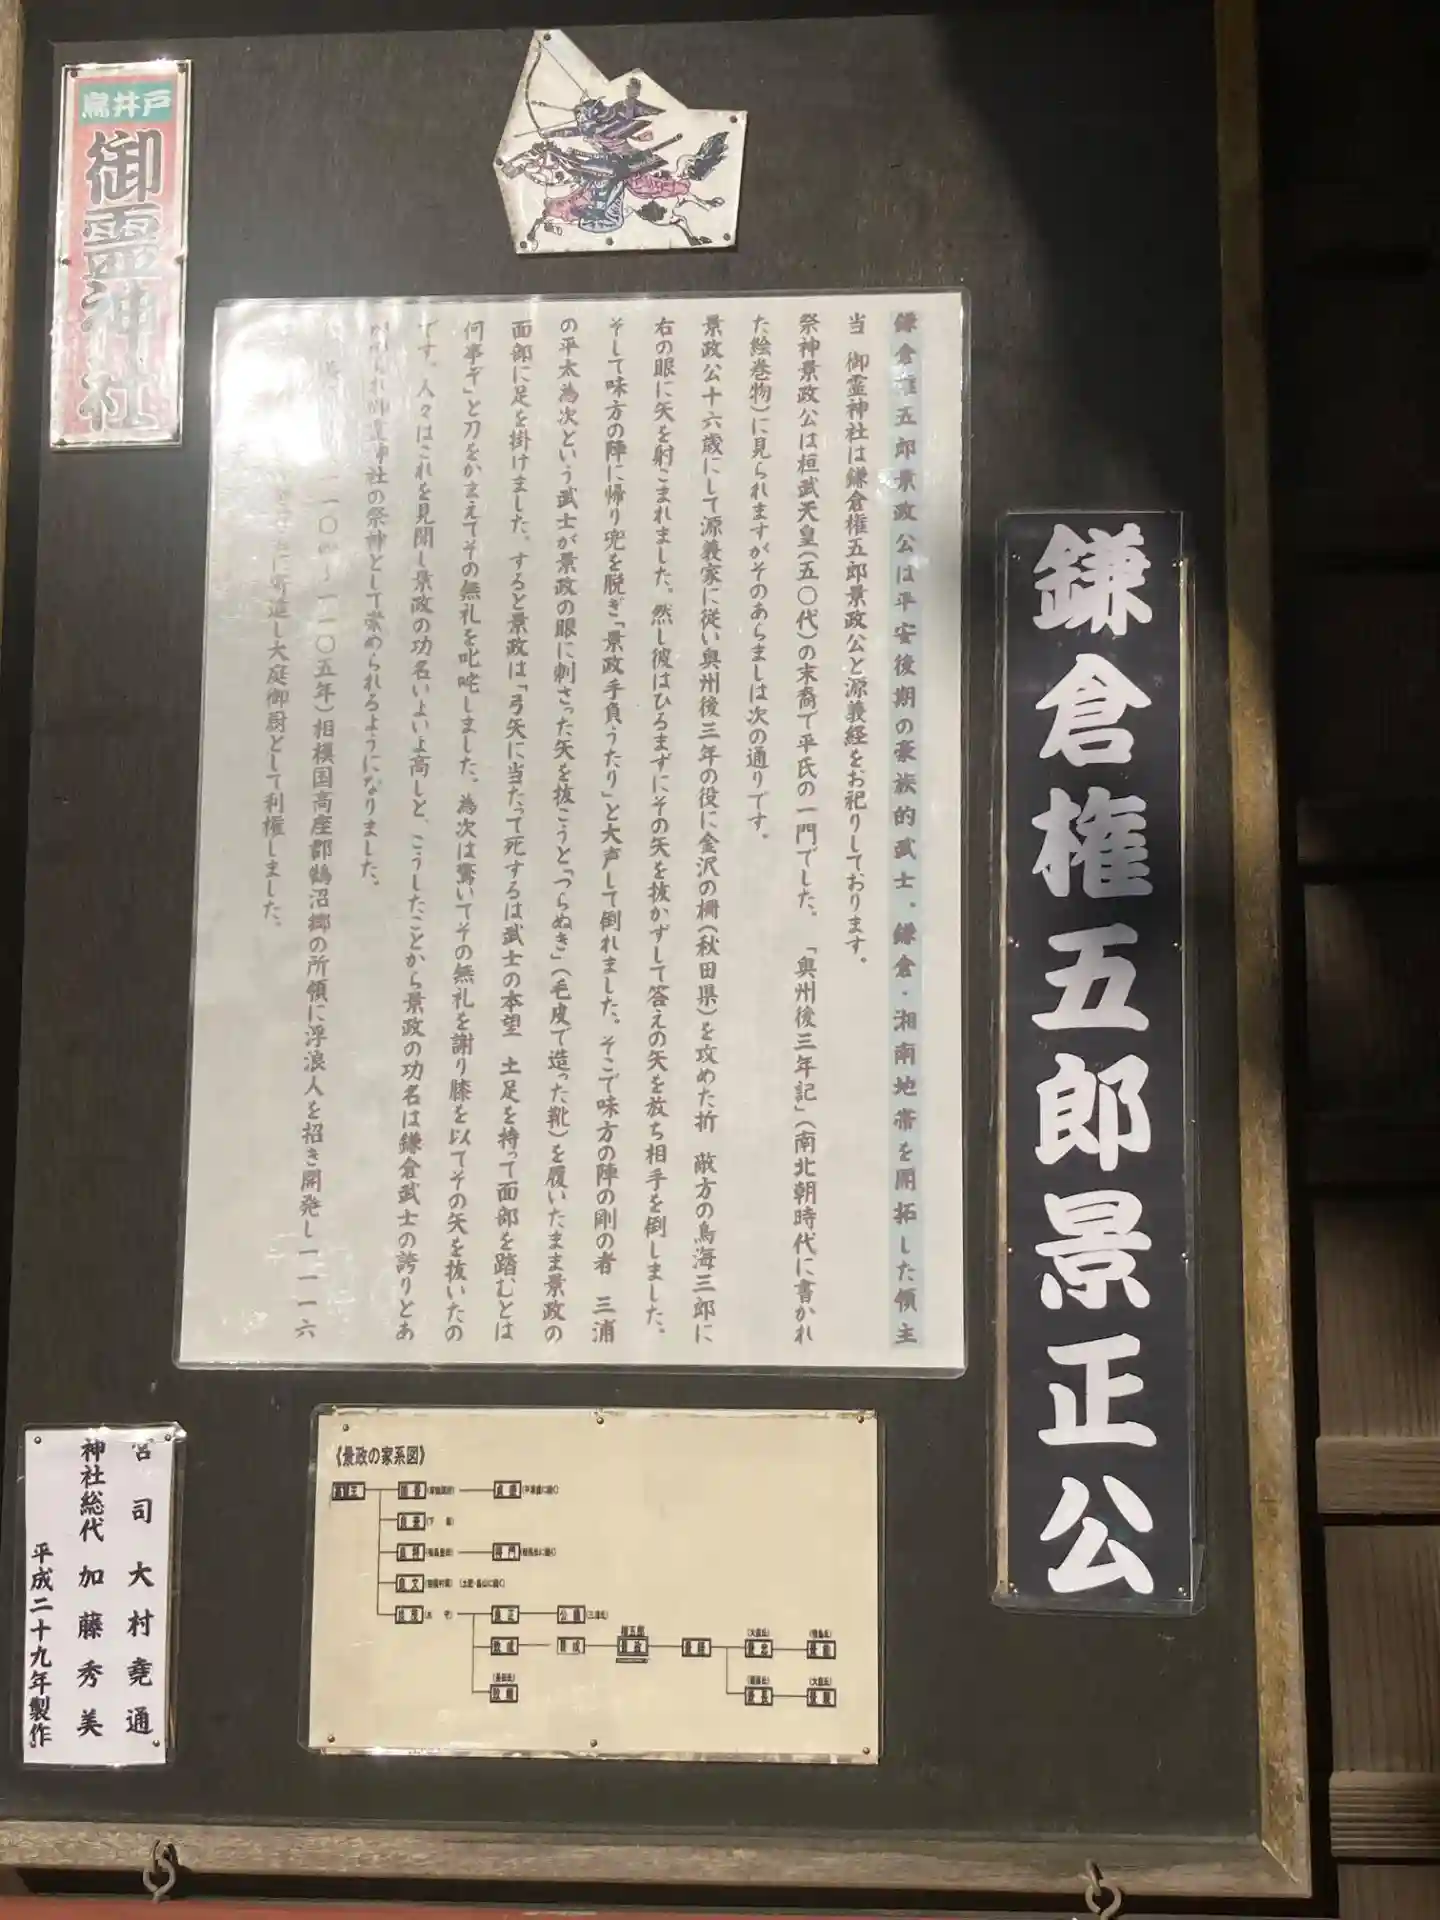 鎌倉権五郎景正公
鎌倉権五郎景政公は平安後期の豪族的武士、鎌倉・湘南地帯を開拓した領主
当 御霊神社は鎌倉権五郎景政公と源義経をお祀りしております。
祭神景政公は桓武天皇(五〇代)の末裔で平氏の一門でした。「奥州後三年記」(南北朝時代に書かれ
た絵巻物)に見られますがそのあらましは次の通りです。
景政公十六歳にして源義家に従い奥州後三年の役に金沢の柵(秋田県)を攻めた折 敵方の鳥海三郎に
右の眼に矢を射こまれました。然し彼はひるまずにその矢を抜かずして答えの矢を放ち相手を倒しました。
そして味方の陣に帰り兜を脱ぎ「景政手負うたり」と大声して倒れました。そこで味方の陣の剛の者 三浦
の平太為次という武士が景政の眼に刺さった矢を抜こうと「つらぬき」(毛皮で造った靴)を履いたまま景政の
面部に足を掛けました。すると景政は「弓矢に当たって死するは武士の本望 土足を持って面部を踏むとは
何事ぞ」と刀をかまえてその無礼を叱咤しました。為次は驚いてその無礼を謝り膝を以てその矢を抜いたの
です。人々はこれを見聞し景政の功名いよいよ高しと、こうしたことから景政の功名は鎌倉武士の誇りとあ
られ御霊神社の祭神として崇められるようになりました。
一一〇五年)相模国高座郡鵠沼郷の所領に浮浪人を招き開発し一一一六
に寄進し大庭御厨として利権しました。
鳥井戸
御霊神社
《景政の家系図》
良文
良正
将門
景政
宮司 大村堯通
神社総代 加藤秀美
平成二十九年製作